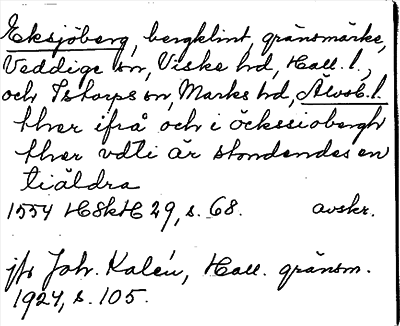 Eksjöberg, bergklint, gränsmärke,
Veddige sn, Viske hd, Hall. l.,
och Istorps sn, Marks hd, Älvsb. l.
thær ifrå och i öckssiobergh
thær vdti är stondendes en
tiäldra
1554 H8kH 29, s. 68. avskr.
jfr Joh. Kalén, Hall. gränsm.
1924, s. 105.